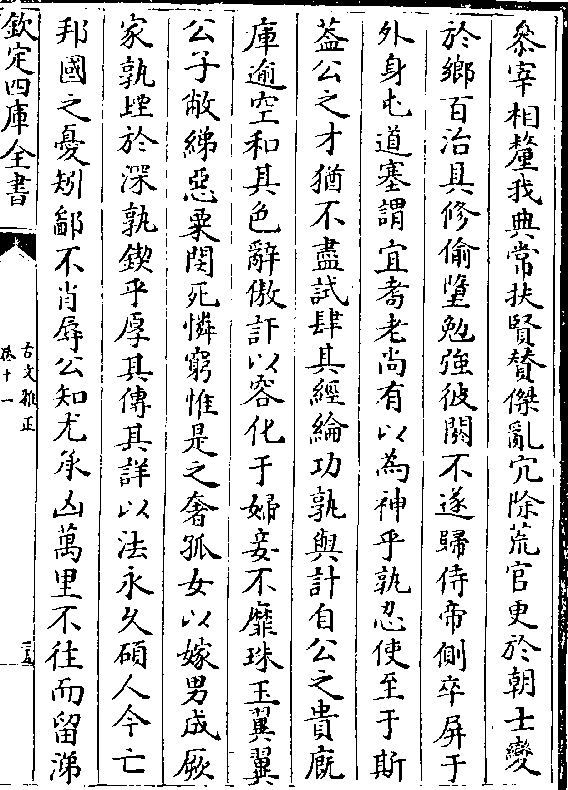 叅宰相釐我典常扶賢賛傑亂冗除荒官更於朝士變
於鄉百治具修偷墮勉強彼閼不遂歸侍帝側卒屏于
外身屯道塞謂宜耇老尚有以為神乎孰忍使至于斯
葢公之才猶不盡試肆其經綸功孰與計自公之貴廐
庫逾空和其色辭傲訐以容化于婦妾不靡珠玉翼翼
公子敝綈惡粟閔死憐窮惟是之奢孤女以嫁男成厥
家孰堙於深孰鍥乎厚其傳其詳以法永久碩人今亡
邦國之憂矧鄙不肖辱公知尤承凶萬里不往而留涕
欽定四庫全書
古文雅正
卷十一